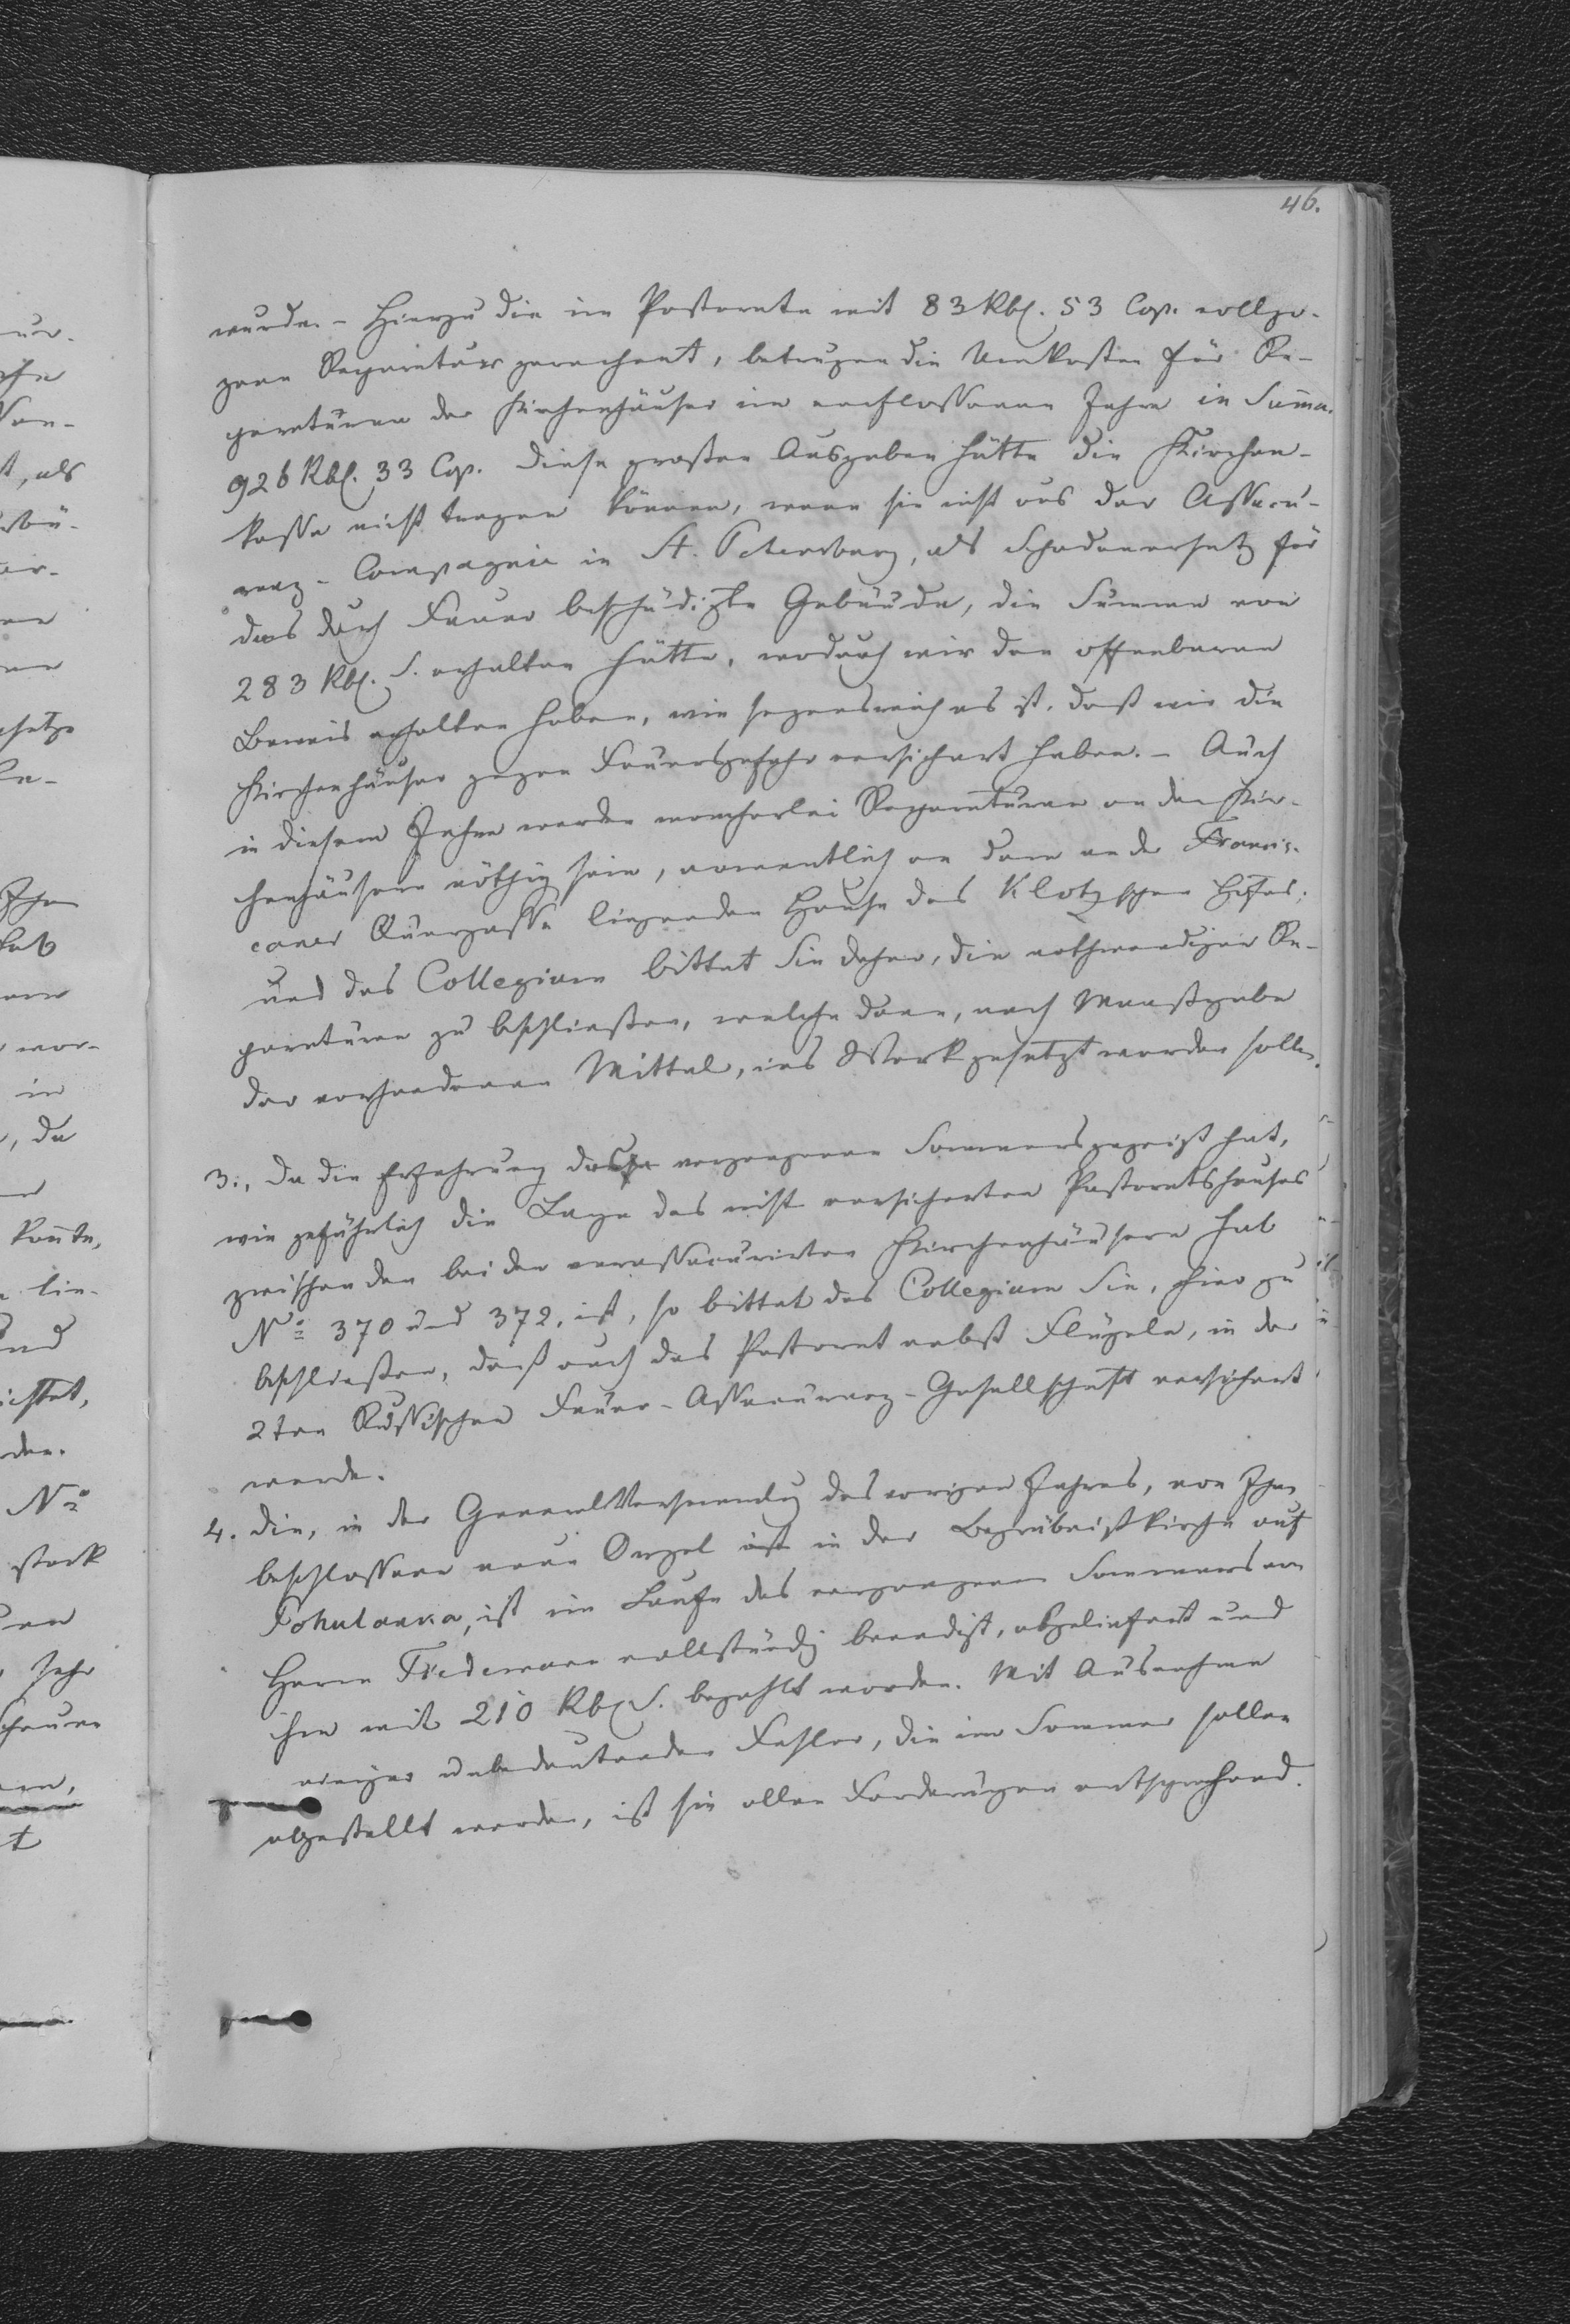 46.
wurde. – Hierzu die im Pastorate mit 83 Rbl. 53 Cop. vollzo-
gene Reparatur gerechnet, betrugen die Unkosten für Re-
paraturen der Kirchenhäuser im verflossenen Jahre in Summa.
926 Rbl. 33 Cop. Diese großen Ausgaben hätte die Kirchen-
kasse nicht tragen können, wenn sie nicht aus der Assecu-
ranz-Compagnie in St. Petersburg, als Schadenersatz für
das durch Feuer beschädigte Gebäude, die Summe von
283 Rbl. S. erhalten hätte, wodurch wir den offenbaren
Beweis erhalten haben, wie segensreich es ist, daß wir die
Kirchenhäuser gegen Feuersgefahr versichert haben. – Auch
in diesem Jahre werden mancherlei Reparaturen an den Kir-
chenhäusern nöthig sein, namentlich an dem an der Francis-
caner Quergasse liegenden Hause des Klotzschen Hofes;
und das Collegium bittet Sie daher, die nothwendigen Re-
paraturen zu beschließen, welche dann, nach Maaßgabe
der vorhandenen Mittel, ins Werk gesetzt werden sollen.
3., Da die Erfahrung des vergangenen Sommers gezeigt hat,
wie gefährlich die Lage des nicht versicherten Pastoratshauses
zwischen den beiden verassecurirten Kirchenhäusern sub
No 370 und 372. ist, so bittet das Collegium Sie, hier zu
beschließen, daß auch das Pastorat nebst Flügeln, in der
2ten Russischen Feuer-Assecuranz-Gesellschaft versichert
werde.
4. Die, in der GeneralVersammlung des vorigen Jahres, von Ihnen
beschlossene neue Orgel in der Begräbnißkirche auf
Pohulanka, ist im Laufe des vergangenen Sommers von
Herrn Tiedemann vollständig beendigt, abgeliefert und
ihm mit 210 Rbl. S. bezahlt worden. Mit Ausnahme
einiger unbedeutenden Fehler, die im Sommer sollen
abgestellt werden, ist sie allen Forderungen entsprechend.